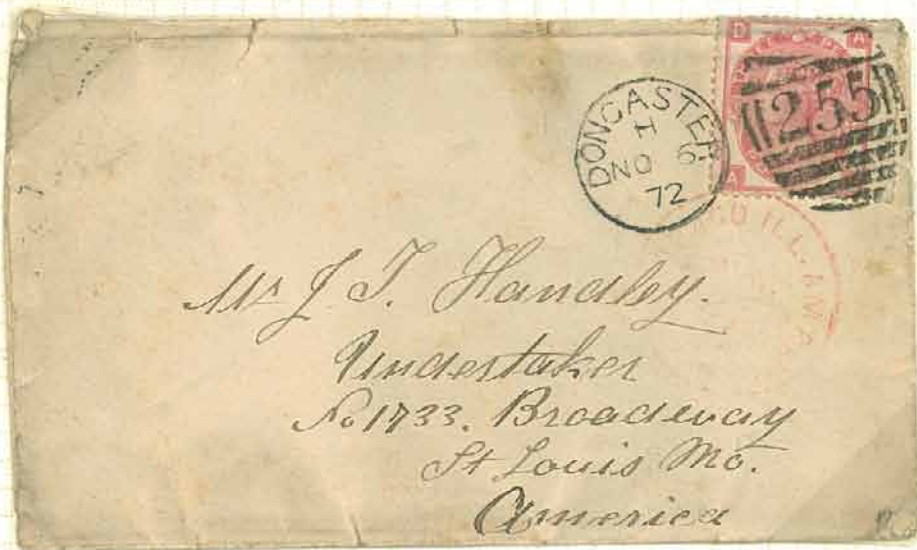 D A
255
DONCASTER
H
NO 6
72
A
ILL. AM
Mr J. T. Handley.
Undertaker
No 1733. Broadway
St Louis Mo.
America